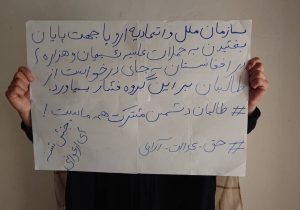 سازمان ملل و اتحادیه اروپا جهت پایان
بخشیدن به حملات علیه شیعیان و هزاره
در افغانستان به جای درخواست از
طالبان بر این گروه فشار بیاورد.
# طالبان دشمن مشترک همه ماست!
# حق_عدالت_آزادی
جنبش